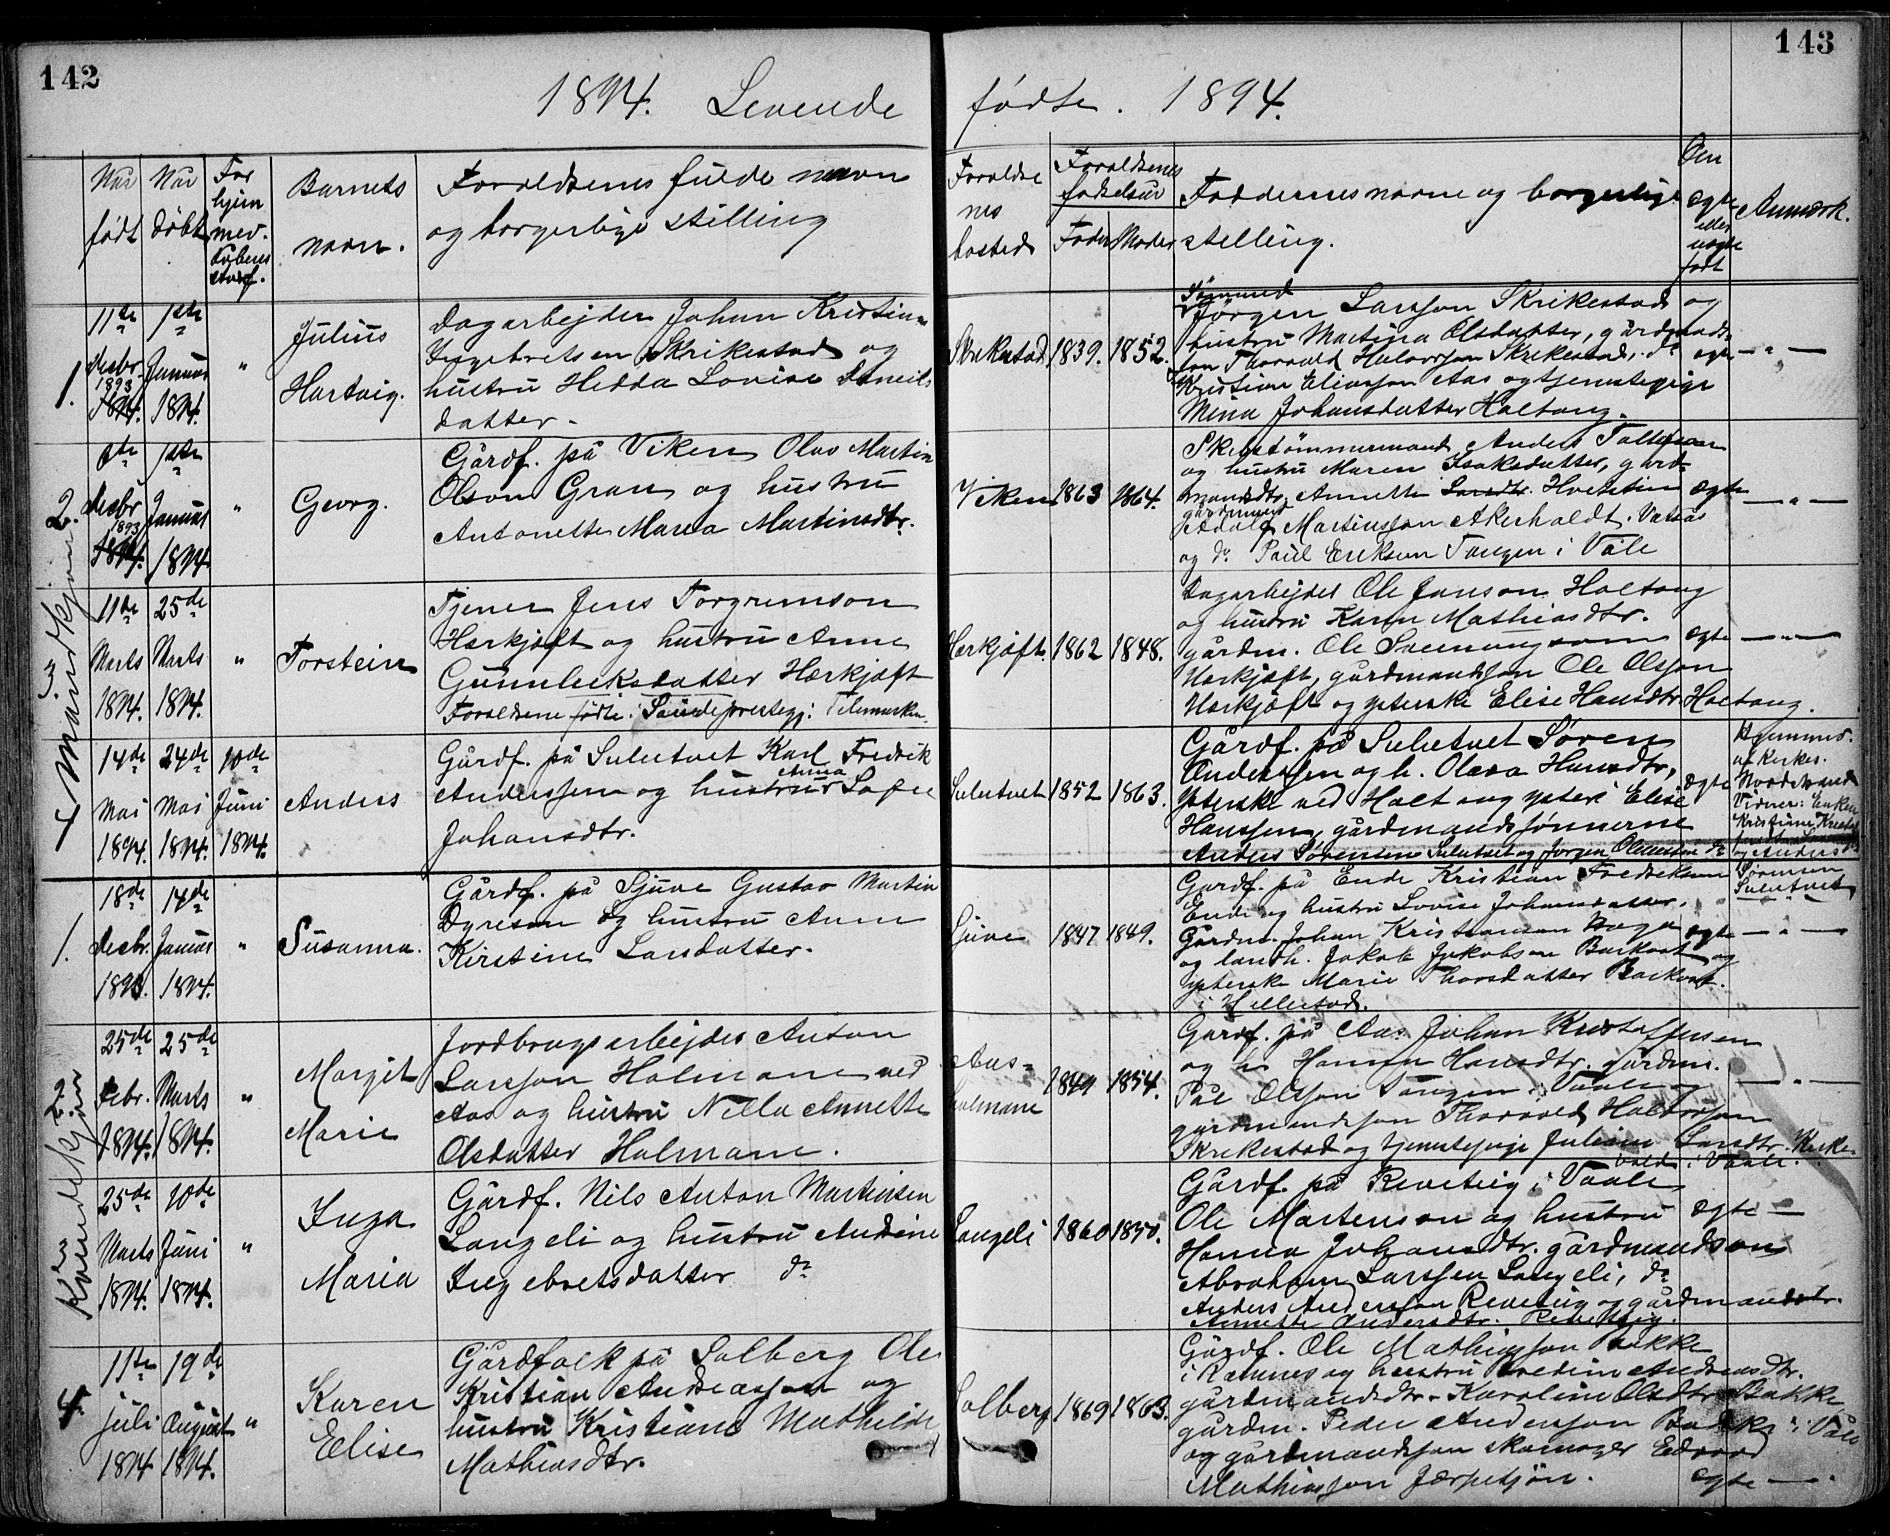 142
143
1894. Levende
fødte. 1894.
Når født
Når døbt
For hjem med. Dåbens
Barnets navn.
Forældrenes fulde navn
og borgerlige stilling
Forældrenes bosted
Forældrenes fødselsår
Fader
Moder
Faddernes navne og borgerlige
stilling.
Om ægte eller uægte født
Anmærk.
4 Mandkjøn
1.
11te desbr. 1893
1ste Januar 1894.
"
Julius
Hartvig.
Dagarbejder Johan Kristian
Ingebretsen Skrikestad og
hustru Hedda Lovise Daniels
datter.
Skrikestad
1839.
1852.
Tømmermd
Jörgen Larsson Skrikestad og
hustru Martina Olsdatter, gårdmands-
søn Thorvald Halvorsson Skrikestad, do
Kristian Eliasson Aas og tjenestepige
Mina Johansdatter Haltang.
ægte — " —
2.
desbr 1893
1ste Januar 1894
"
Georg.
Gårdf. på Viken Olav Martin
Olson Gran og hustru
Antonette Maria Martinsdtr.
Viken
1863
1864.
Skibstømmermand Anders Tollefsson
og hustru Maren Isaksdatter, gård-
mandsdtr. Annette Larsdtr.
gårdmand
Adolf Martinsson Akerholdt. Vasaas
og do Paul Eriksen Tangen i Våle
ægte — " —
3
11te Marts 1894.
25de Marts 1894.
"
Torstein
Tjener Jens Torgrimson
Hærkjøft og hustru Anne
Gunnleiksdatter Hærkjøft
Forældrene fødte i Saudeprestegj. Telemarken.
Hærkjøft.
1862
1848.
Dagarbejder Ole Janson Haltang
og hustru Karen Mathiasdtr.
gårdm. Ole Sveinungsson
Hærkjøft, gårdmandssøn Ole Olsson
Hærkjøft og ysterske Elise Hansdtr Haltang.
ægte — " —
14de Mai 1894.
24de Mai 1894.
10de Juni 1894.
Anders
Gårdf. på Sulutvet Karl Fredrik
Anderssen og hustru Anna Sofie
Johansdtr.
Sulutvet
1852
1863.
Gårdf. på Sulutvet Søren
Anderssen og h. Olava Hansdtr,
ysterske ved Haltang ysteri Elise
Hanssen, gårdmandssønnerne
Anders Sørensen Sulutvet og Jørgen Olaussen do
ægte
Hjemmed.
af Kirkes.
Nordstrand
Vidner: Enken
Kristine
og Anders
Sörensen
Sulutvet
Kvindekjøn
1.
18de desbr. 1893.
14de Januar 1894.
"
Susanna.
Gårdf. på Sjuve Gustav Martin
Dyresen og hustru Anne
Kirstine Larsdatter.
Sjuve
1847
1849.
Gardf. på Ende Kristian Fredriksen
Ende og hustru Lovise Johannsdatter.
Gårdm. Johan Kristiansen Haga
og landh. Jakob Jakobsen Barkost og
ysterske Marie Thorsdatter Barkost
i Hillestad.
ægte — " —
2.
25de Febr. 1894.
25de Marts 1894.
"
Margit
Marie
Jordbrugsarbejder Anton
Larsson Holmane ved
Aas og hustru Nilla Annette
Olsdatter Holmane.
Aas-
holmane
1849
1854.
Gardf. på Aas Johan Kristoffersen
og h. Hanna Hansdtr, gårdm.
Pål Olsson Tangen i Vaale og
gårdmandssøn Thorvald Halvorsson
Skrikestad og tjenestepige Juliane Larsdtr. Kirke-
vold i Vaale.
— " —
3
25de Marts 1894.
10de Juni 1894.
"
Inga
Maria
Gårdf. Nils Anton Martinsen
Langeli og hustru Andrine
Ingebretsdatter do
Langeli
1860
1850.
Gårdf. på Revetrig i Vaale
Ole Martenson og hustru
Hanna Johansdtr. gårdmandsøn
Abraham Larssen Langeli, do
Anders Andersson Revetrig og gårdmandsdtr.
Annette Andersdtr. Revetrig.
ægte —
4.
11te juli 1894
19de August 1894.
"
Karen
Elise
Gårdfolk på Solberg Ole
Kristian Andreassøn og
hustru Kristiane Mathilde
Mathiasdtr.
Solberg
1869
1863.
Gårdf. Ole Mathiasson Bakke
i Ramnes og hustru Bredine Andreasdtr.
gårdmandsdtr. Karoline Olsdtr Bakke
gårdm. Peder Anderson Bakke i Våle
og gårdmandssøn skomager Edvard
Mathiasson Jærpetjøn.
ægte — .